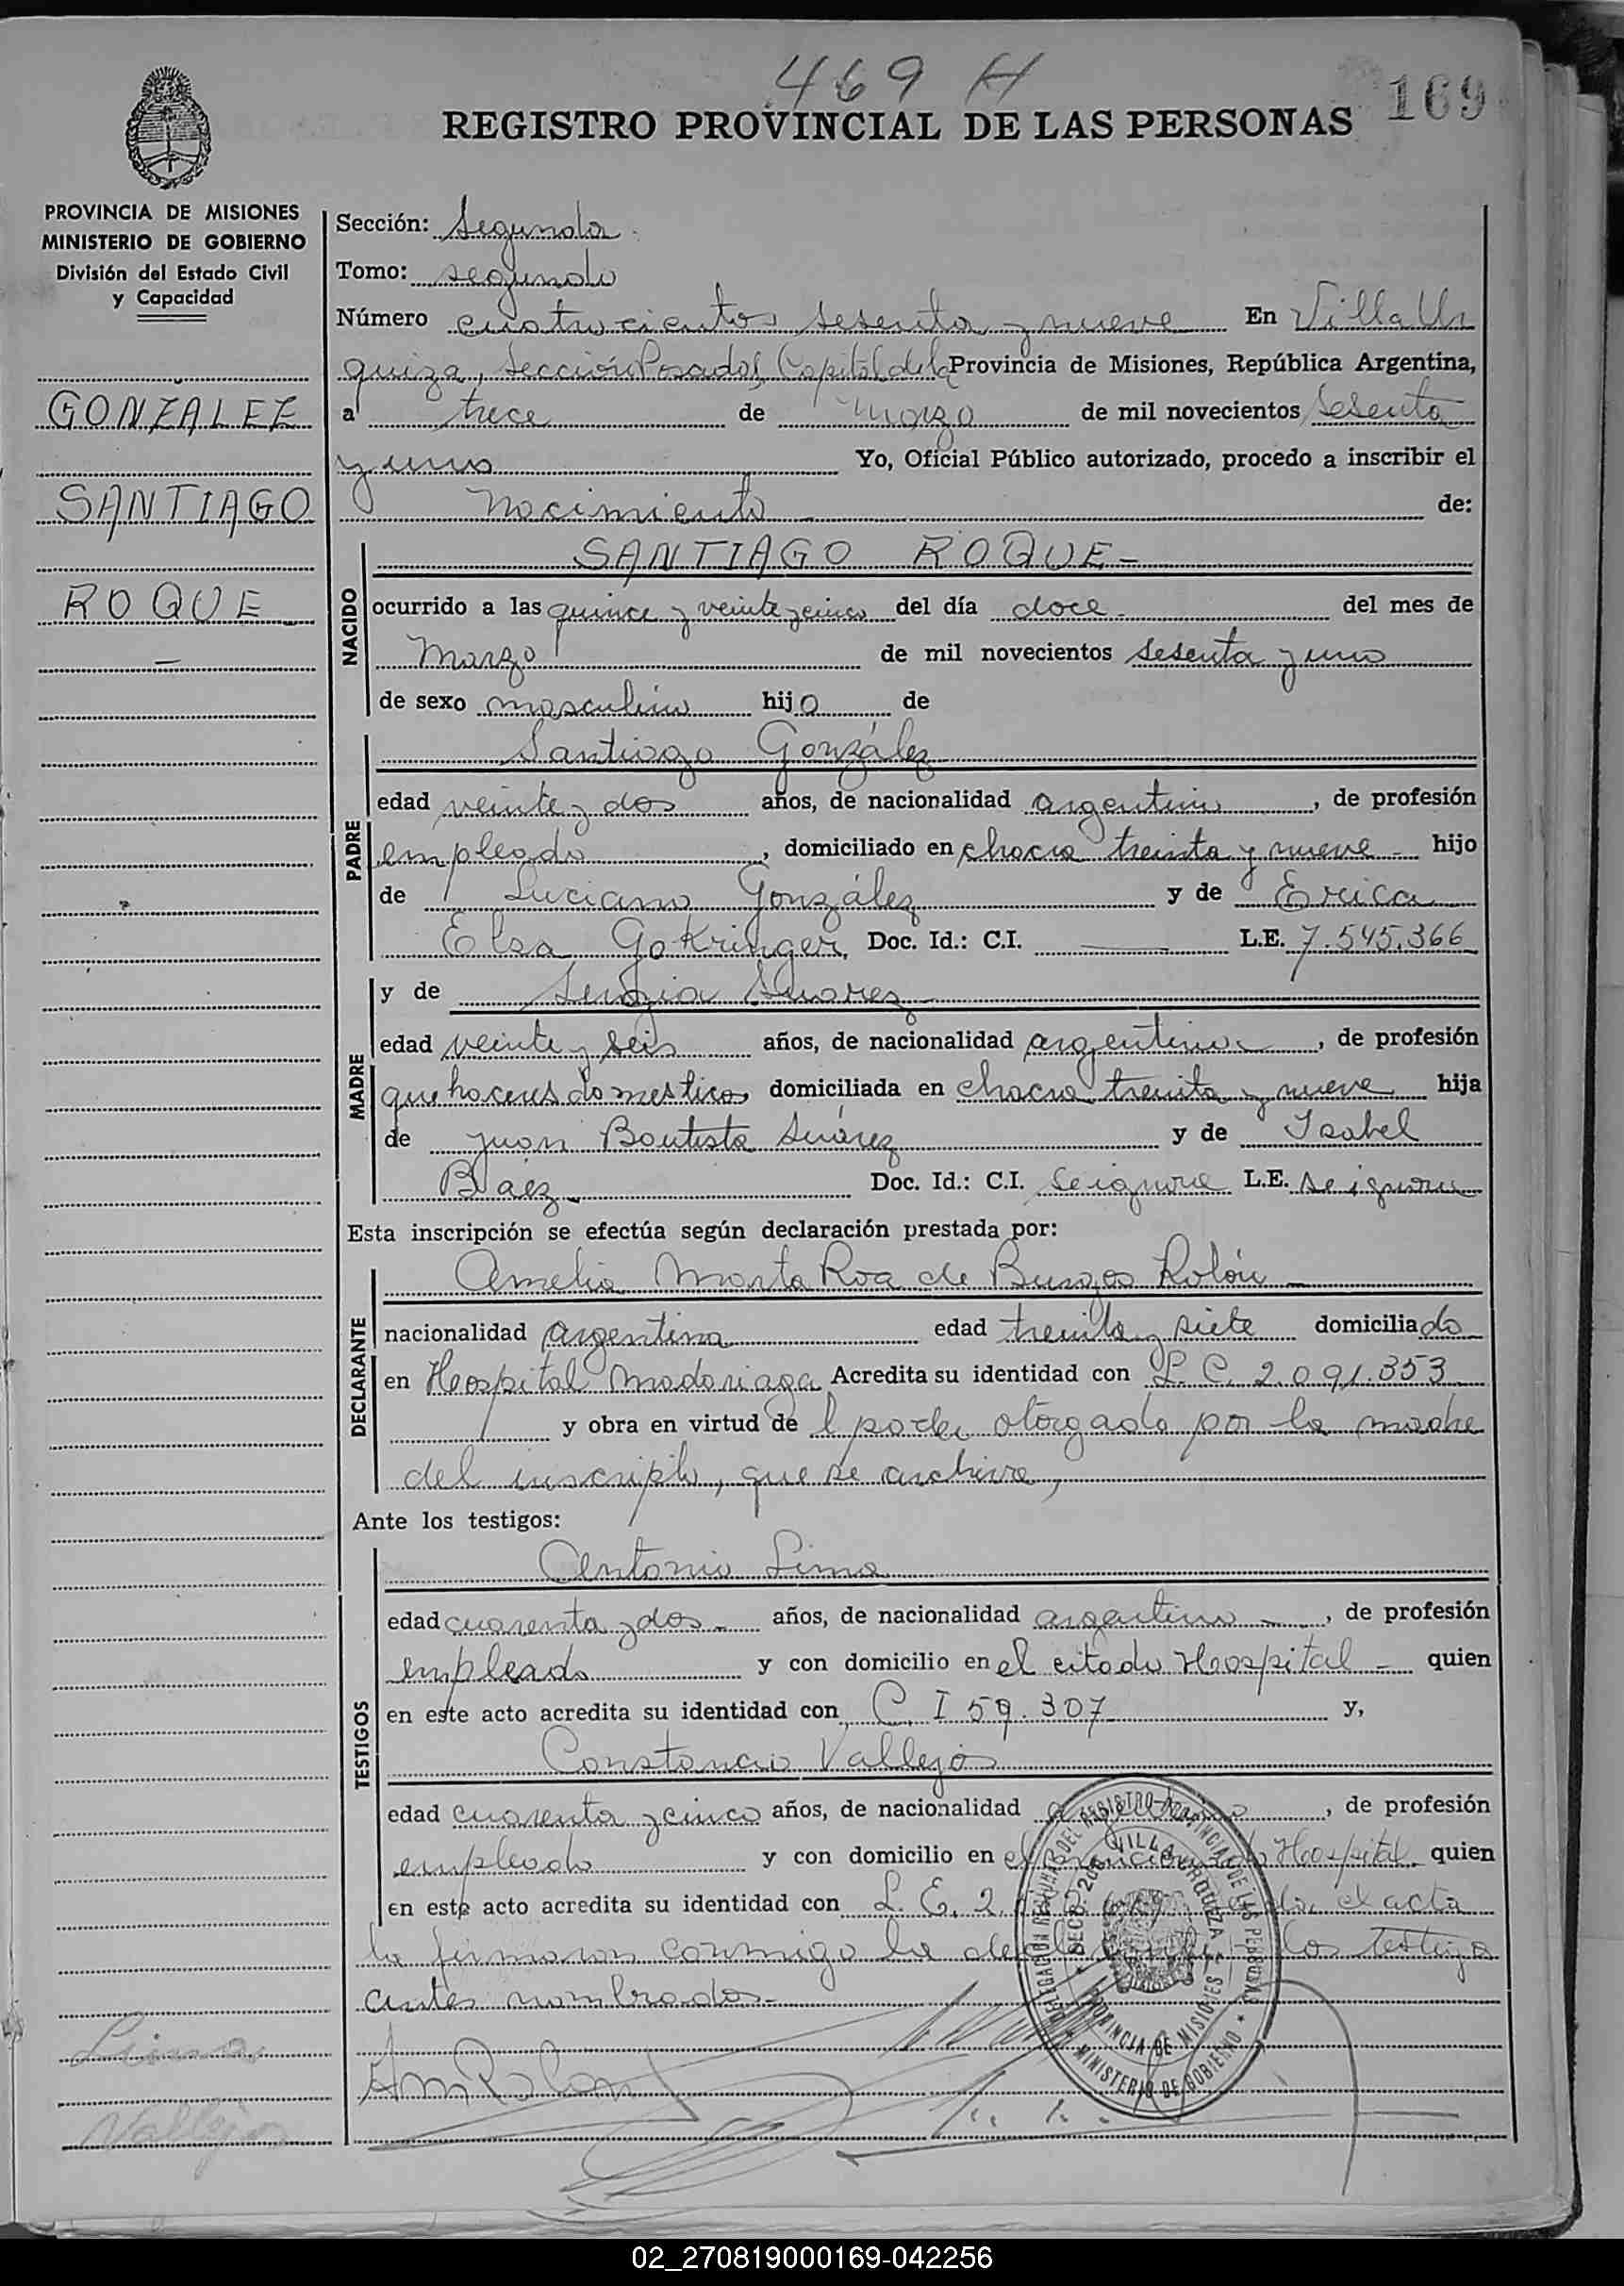 469 H
169
REGISTRO PROVINCIAL DE LAS PERSONAS
PROVINCIA DE MISIONES
MINISTERIO DE GOBIERNO
División del Estado Civil
y Capacidad
GONZALEZ
SANTIAGO
ROQUE
Sección: Segunda
Tomo: segundo
Número cuatrocientos sesenta y nueve En Villa Ur
quiza, Sección Posadas, Capital de la Provincia de Misiones, República Argentina,
a trece de marzo de mil novecientos sesenta
y uno Yo, Oficial Público autorizado, procedo a inscribir el
Nacimiento de:
NACIDO
SANTIAGO ROQUE-
ocurrido a las quince y veinte y cinco del día doce del mes de
Marzo de mil novecientos sesenta y uno
de sexo masculino hijo de
PADRE
Santiago González
edad veinte y dos años, de nacionalidad argentino, de profesión
empleado, domiciliado en chacra treinta y nueve hijo
de Luciano González y de Erica
Elsa Gokringer, Doc. Id.: C.I. L.E. 7.545.366
MADRE
y de Sergia Suarez
edad veinte y seis años, de nacionalidad argentina, de profesión
quehaceres domesticos domiciliada en chacra treinta y nueve hija
de Juan Bautista Suárez y de Isabel
Baez Doc. Id.: C.I. Se ignora L.E. se ignora
Esta inscripción se efectúa según declaración prestada por:
DECLARANTE
Amelia Marta Roa de Burgos Rolón
nacionalidad argentina edad treinta y siete domiciliado
en Hospital Madariaga Acredita su identidad con L.C. 2.091.353
y obra en virtud de l poder otorgado por la madre
del inscripto, que se archiva,
Ante los testigos:
TESTIGOS
Antonio Lima
edad cuarenta y dos años, de nacionalidad argentino, de profesión
empleado y con domicilio en el citado Hospital quien
en este acto acredita su identidad con C. I 59.307 y,
Constancio Vallejos
edad cuarenta y cinco años, de nacionalidad argentino, de profesión
empleado y con domicilio en el Hospital quien
en este acto acredita su identidad con L. E. 2. el acta
la firmaron conmigo la los testigos
antes nombrados.-
Lima
Vallejos
DELEGACION DEL REGISTRO PROVINCIAL DE LAS PERSONAS
MINISTERIO DE GOBIERNO
SECC. 2da. VILLA URQUIZA
PROVINCIA DE MISIONES
02_270819000169-042256